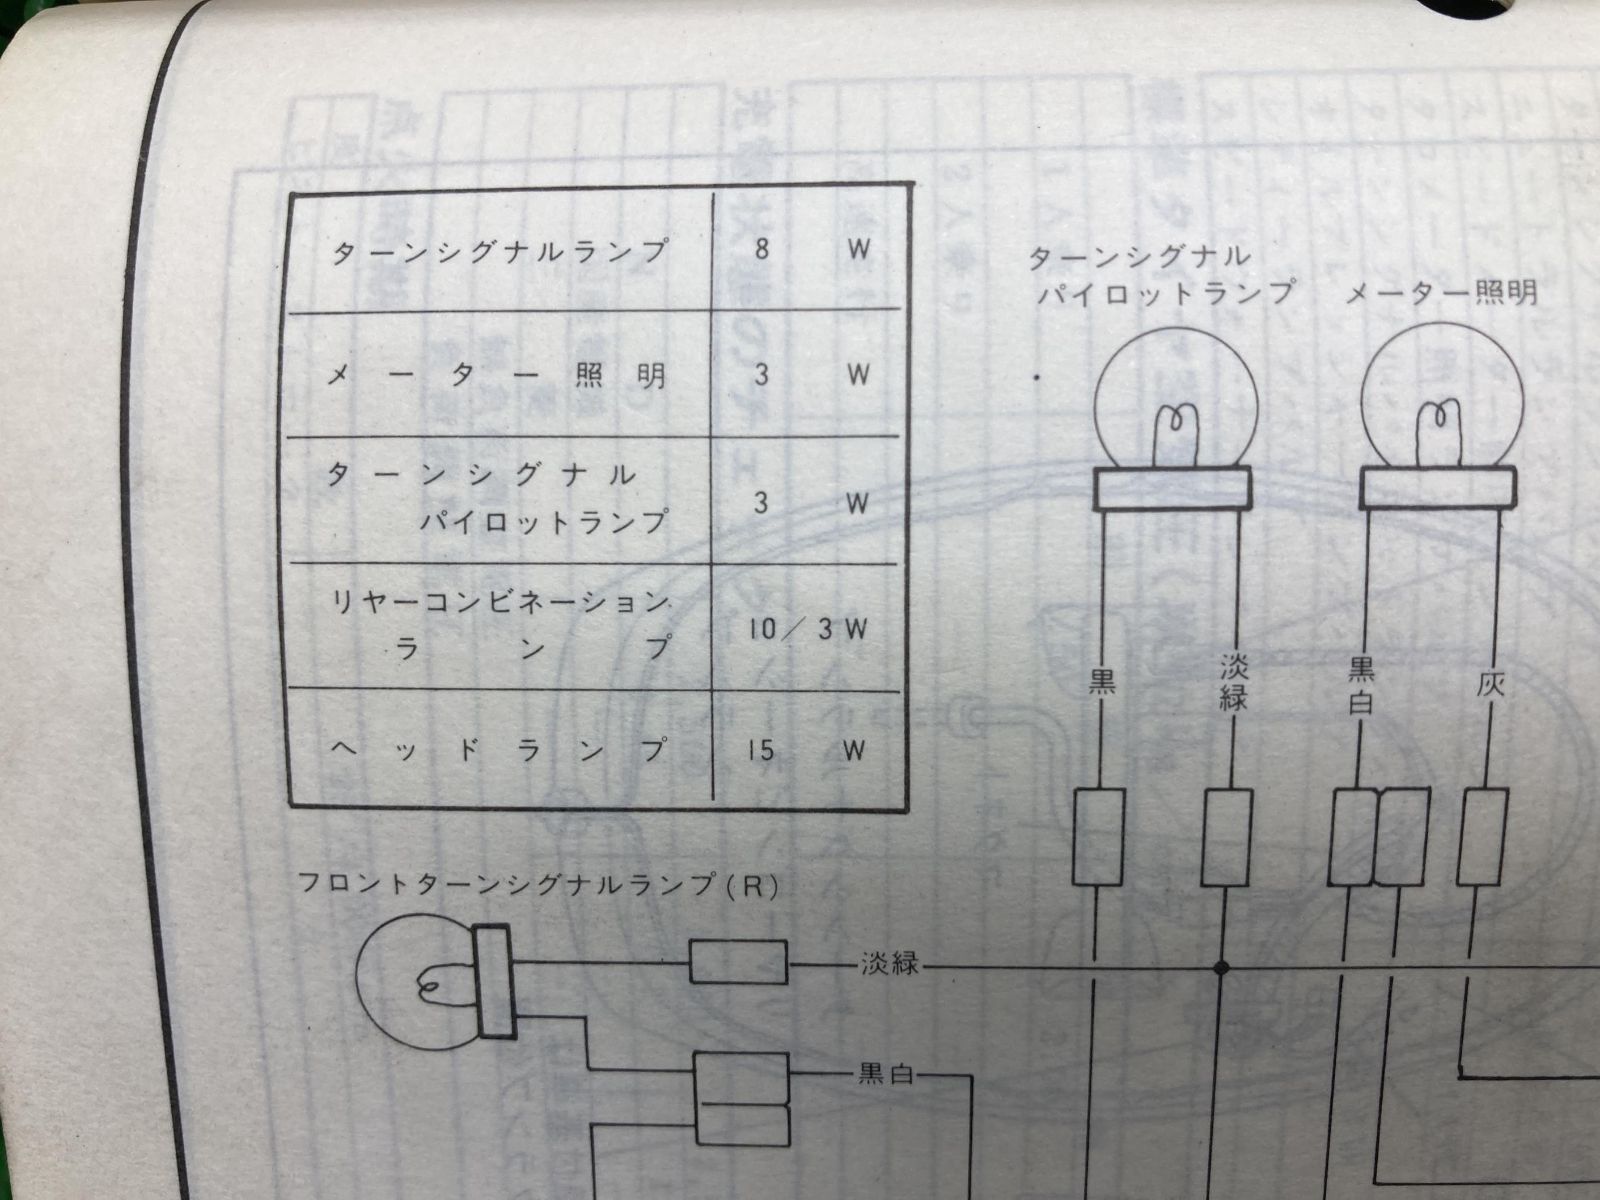 ターンシグナルランプ 8 W
メーター照明 3 W
ターンシグナル
パイロットランプ 3 W
リヤーコンビネーション
ランプ 10/3 W
ヘッドランプ 15 W
ターンシグナル
パイロットランプ
メーター照明
黒
淡緑
黒白
灰
フロントターンシグナルランプ(R)
淡緑
黒白